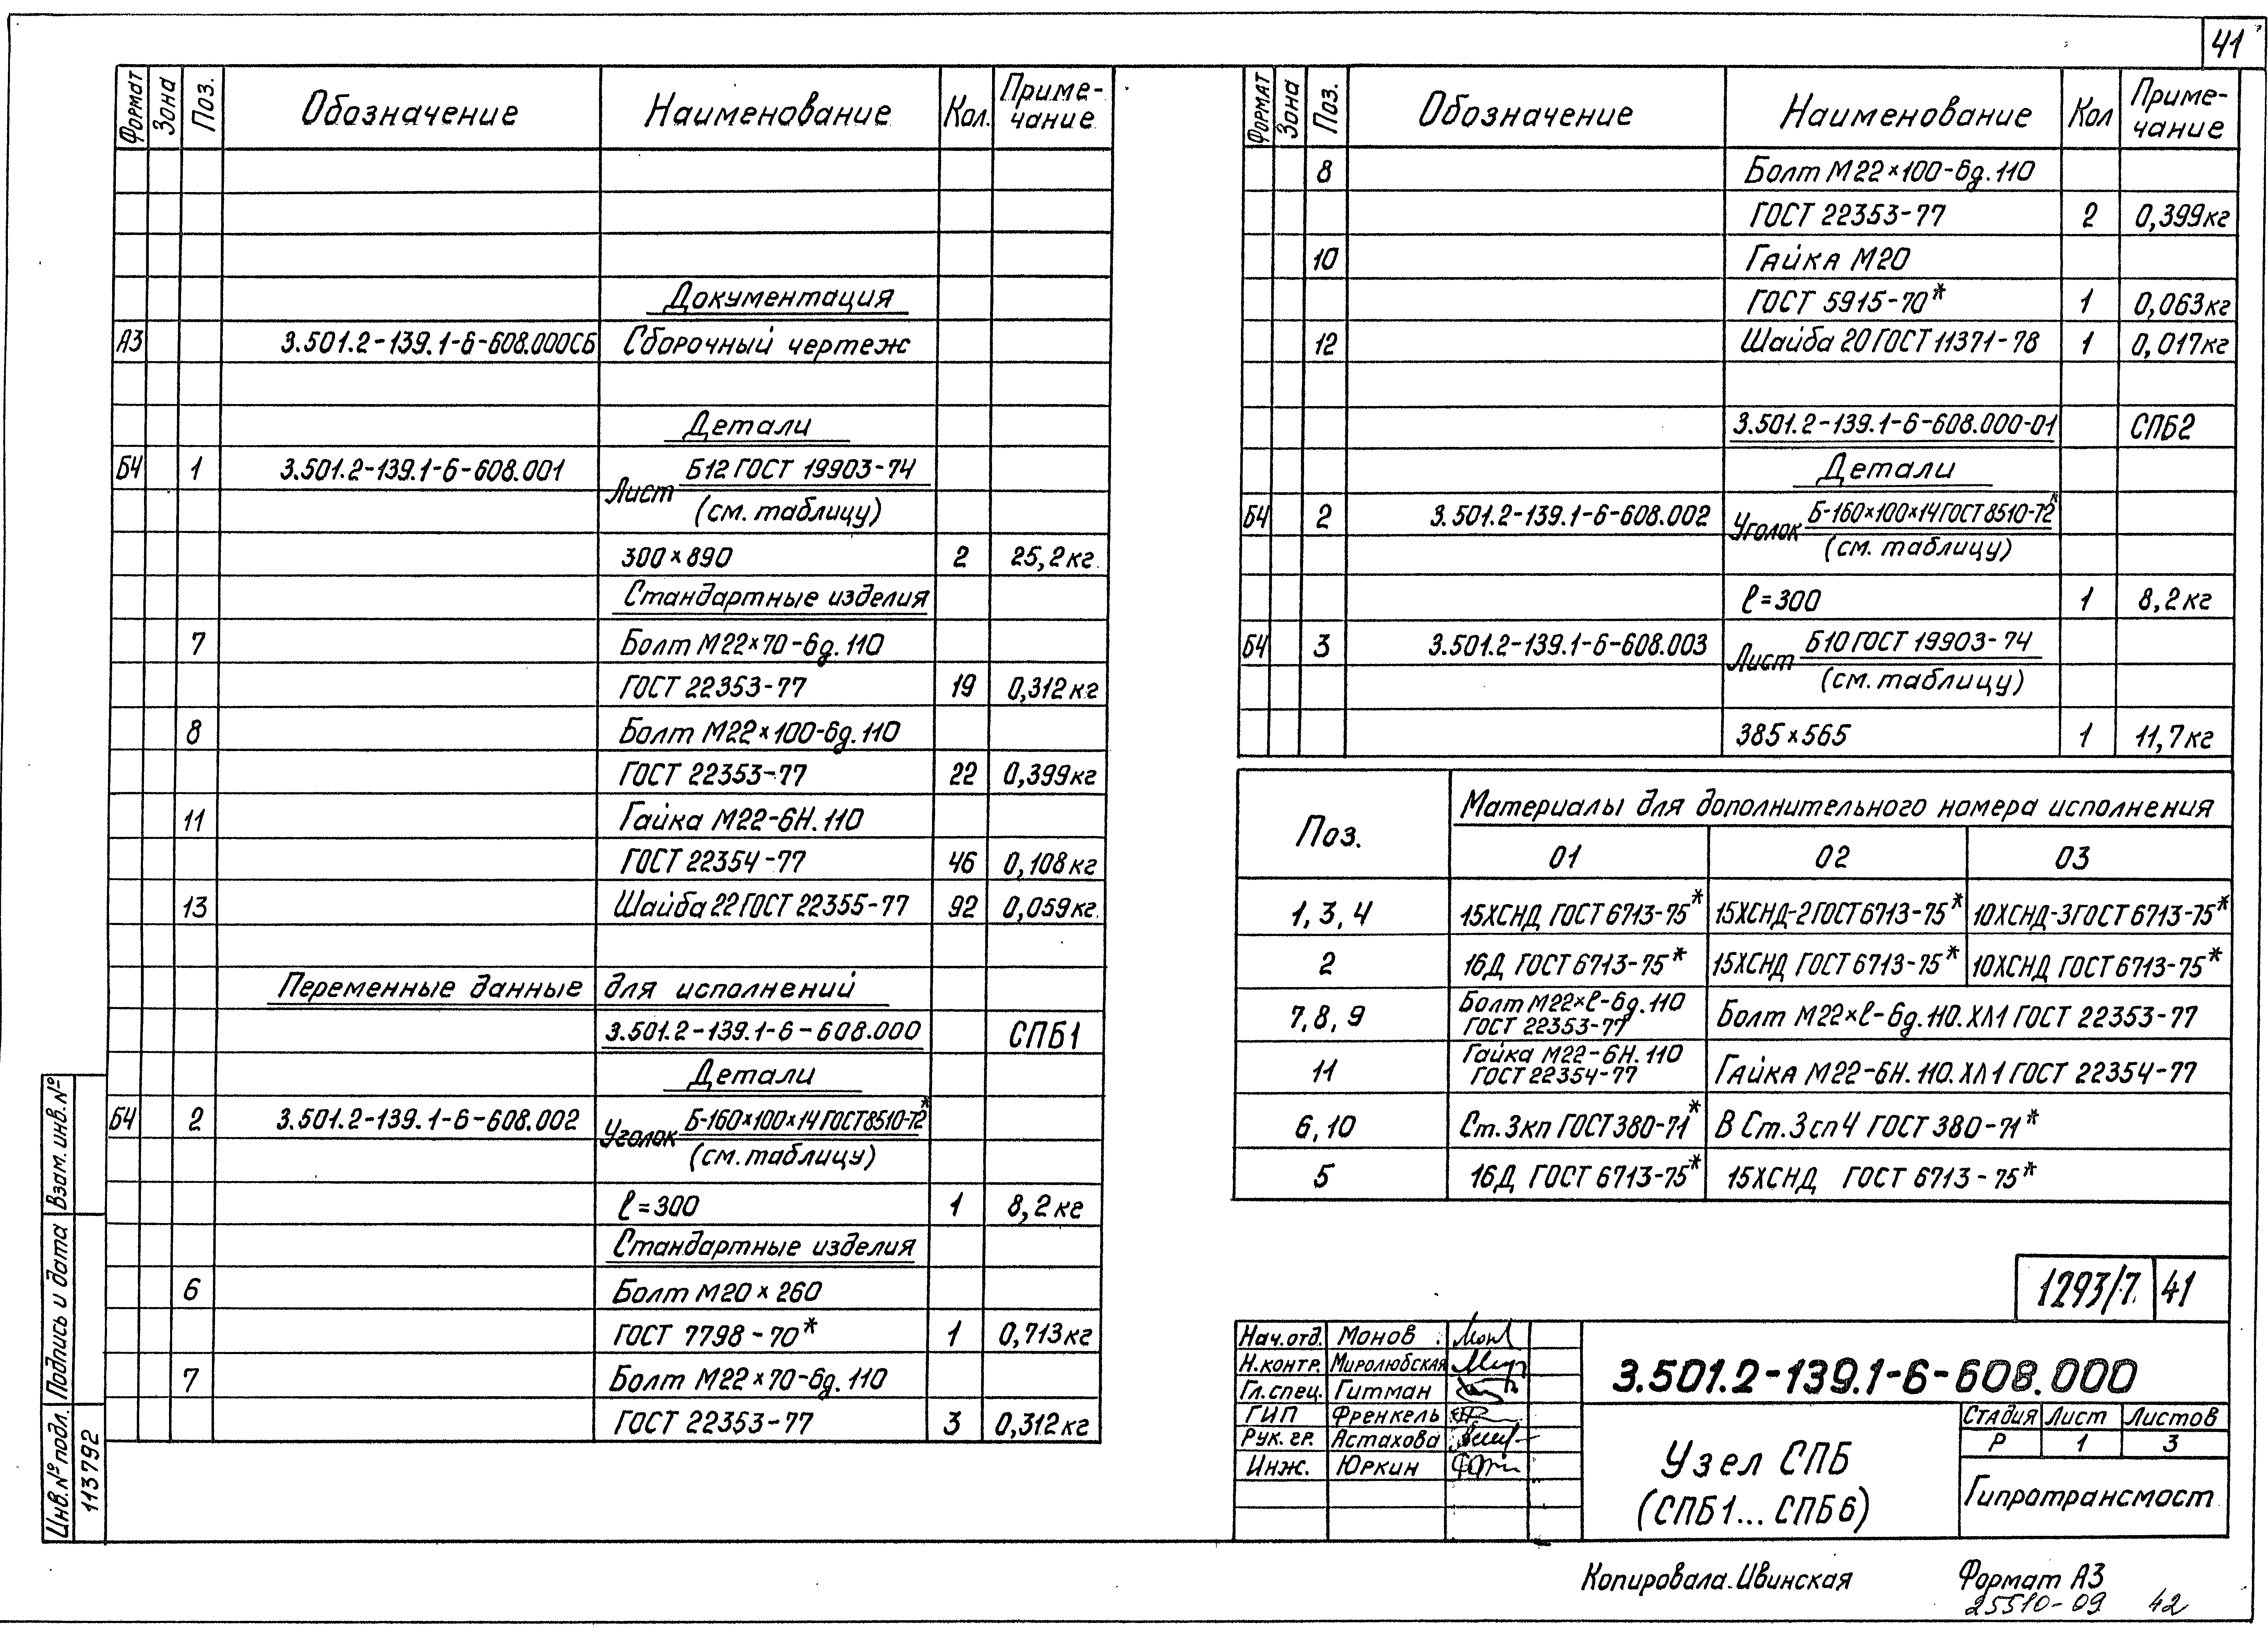 41
Формат Зона Поз. Обозначение Наименование Кол. Приме-чание
Документация
А3 3.501.2-139.1-6-608.000СБ Сборочный чертеж
Детали
Б4 1 3.501.2-139.1-6-608.001 Лист Б12 ГОСТ 19903-74
(см. таблицу)
300×890 2 25,2 кг.
Стандартные изделия
7 Болт М22×70-6g.110
ГОСТ 22353-77 19 0,312 кг
8 Болт М22×100-6g.110
ГОСТ 22353-77 22 0,399 кг
11 Гайка М22-6Н.110
ГОСТ 22354-77 46 0,108 кг
13 Шайба 22 ГОСТ 22355-77 92 0,059 кг.
Переменные данные для исполнений
3.501.2-139.1-6-608.000 СПБ1
Детали
Б4 2 3.501.2-139.1-6-608.002 Уголок Б-160×100×14 ГОСТ 8510-72*
(см. таблицу)
ℓ=300 1 8,2 кг
Стандартные изделия
6 Болт М20×260
ГОСТ 7798-70* 1 0,713 кг
7 Болт М22×70-6g.110
ГОСТ 22353-77 3 0,312 кг
Формат Зона Поз. Обозначение Наименование Кол Приме-чание
8 Болт М22×100-6g.110
ГОСТ 22353-77 2 0,399 кг
10 Гайка М20
ГОСТ 5915-70* 1 0,063 кг
12 Шайба 20 ГОСТ 11371-78 1 0,017 кг
3.501.2-139.1-6-608.000-01 СПБ2
Детали
Б4 2 3.501.2-139.1-6-608.002 Уголок Б-160×100×14 ГОСТ 8510-72*
(см. таблицу)
ℓ=300 1 8,2 кг
Б4 3 3.501.2-139.1-6-608.003 Лист Б10 ГОСТ 19903-74
(см. таблицу)
385×565 1 11,7 кг
Поз. Материалы для дополнительного номера исполнения
01 02 03
1, 3, 4 15ХСНД ГОСТ 6713-75* 15ХСНД-2 ГОСТ 6713-75* 10ХСНД-3 ГОСТ 6713-75*
2 16Д ГОСТ 6713-75* 15ХСНД ГОСТ 6713-75* 10ХСНД ГОСТ 6713-75*
7, 8, 9 Болт М22×ℓ-6g.110 ГОСТ 22353-77 Болт М22×ℓ-6g.110.ХЛ1 ГОСТ 22353-77
11 Гайка М22-6Н.110 ГОСТ 22354-77 Гайка М22-6Н.110.ХЛ1 ГОСТ 22354-77
6, 10 Ст.3кп ГОСТ 380-71* В Ст.3сп4 ГОСТ 380-71*
5 16Д ГОСТ 6713-75* 15ХСНД ГОСТ 6713-75*
1293/7 41
Нач.отд. Монов
Н.контр. Миролюбская
Гл.спец. Гитман
ГИП Френкель
Рук.гр. Астахова
Инж. Юркин
3.501.2-139.1-6-608.000
Узел СПБ
(СПБ1...СПБ6)
Стадия Лист Листов
Р 1 3
Гипротрансмост
Инв.№ подл. Подпись и дата Взам. инв.№
113792
Копировала Ивинская Формат А3
25510-09 42